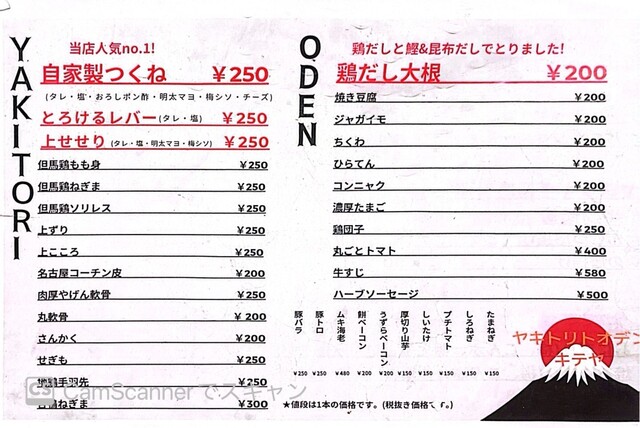 YAKITORI
当店人気no.1!
自家製つくね ￥250
(タレ・塩・おろしポン酢・明太マヨ・梅シソ・チーズ)
とろけるレバー(タレ・塩) ￥250
上せせり(タレ・塩・明太マヨ・梅シソ) ￥250
但馬鶏もも身 ￥250
但馬鶏ねぎま ￥250
但馬鶏ソリレス ￥250
上ずり ￥250
上こころ ￥250
名古屋コーチン皮 ￥200
肉厚やげん軟骨 ￥250
丸軟骨 ￥200
さんかく ￥200
せぎも ￥250
地鶏手羽先 ￥250
ねぎま ￥300
CamScannerでスキャン
ODEN
鶏だしと鰹&昆布だしでとりました!
鶏だし大根 ￥200
焼き豆腐 ￥200
ジャガイモ ￥200
ちくわ ￥200
ひらてん ￥200
コンニャク ￥200
濃厚たまご ￥200
鶏団子 ￥250
丸ごとトマト ￥400
牛すじ ￥580
ハーブソーセージ ￥500
豚バラ ￥250
豚トロ ￥250
ムキ海老 ￥480
餅ベーコン ￥200
うずらベーコン ￥200
厚切り山芋 ￥150
しいたけ ￥150
プチトマト ￥150
しろねぎ ￥150
たまねぎ ￥150
★値段は1本の価格です。(税抜き価格です。)
ヤキトリトオデン
キテヤ